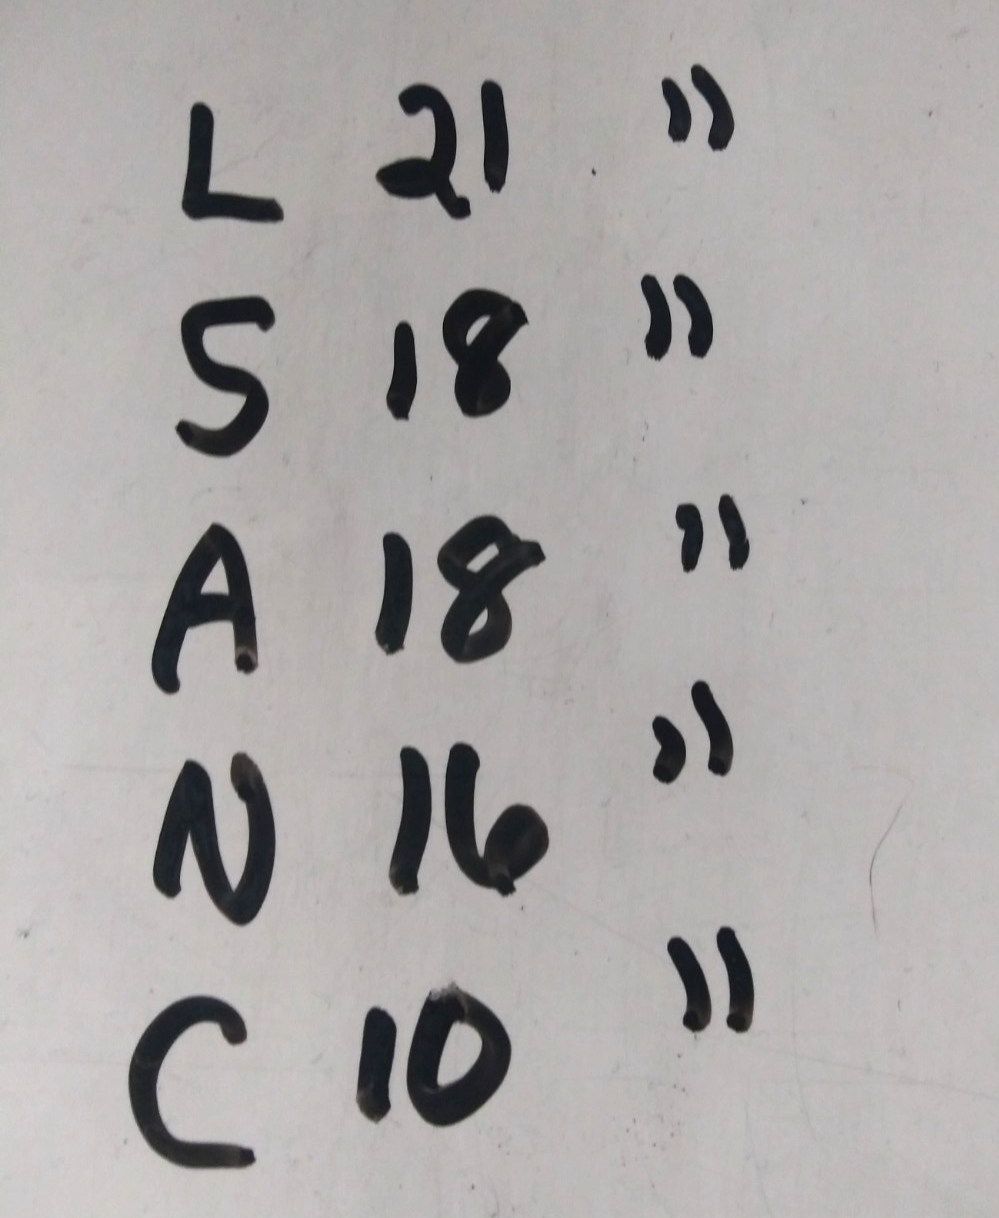 L 21 "
S 18 "
A 18 "
N 16 "
C 10 "